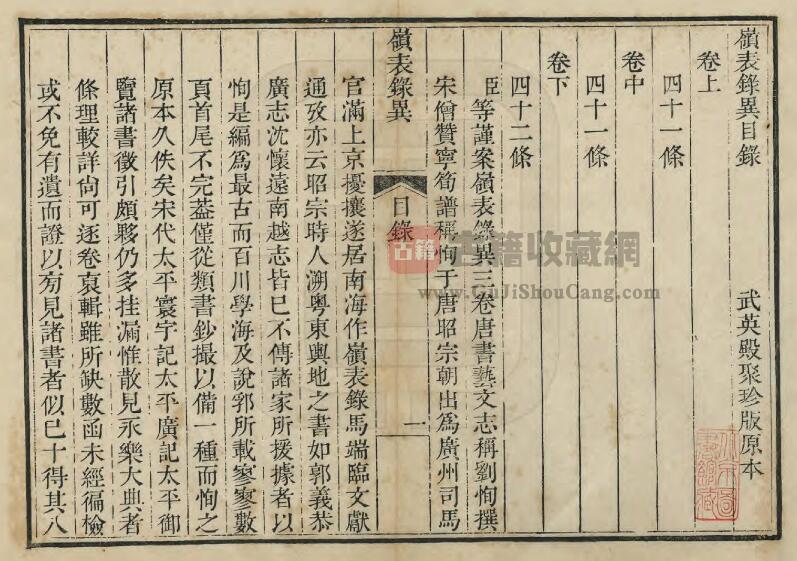 嶺表錄異目錄 武英殿聚珍版原本
卷上
四十一條
卷中
四十一條
卷下
四十二條
臣等謹案嶺表錄異三卷唐書藝文志稱劉恂撰
宋僧贊寧筍譜稱恂于唐昭宗朝出爲廣州司馬
嶺表錄異 目錄 一
官滿上京擾攘遂居南海作嶺表錄馬端臨文獻
通攷亦云昭宗時人溯粵東輿地之書如郭義恭
廣志沈懷遠南越志皆已不傳諸家所援據者以
恂是編爲最古而百川學海及說郛所載寥寥數
頁首尾不完葢僅從類書鈔撮以備一種而恂之
原本久佚矣宋代太平寰宇記太平廣記太平御
覽諸書徵引頗夥仍多挂漏惟散見永樂大典者
條理較詳尙可逐卷裒輯雖所缺數函未經徧檢
或不免有遺而證以旁見諸書者似已十得其八
古籍 古籍收藏網
www.GuJiShouCang.com